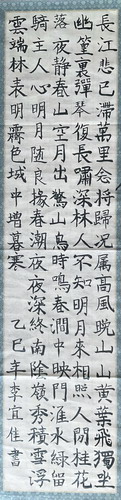 長江悲已滯萬里念將歸况属高風晚山山黄葉飛獨坐
幽篁裏彈琴復長嘯深林人不知明月來相照人閒桂花
落夜静春山空月出驚山鳥時鳴春澗中映門淮水緑留
騎主人心明月隨良掾春潮夜夜深終南陰嶺秀積雪浮
雲端林表明霽色城中增暮寒 乙巳年李宜佳書